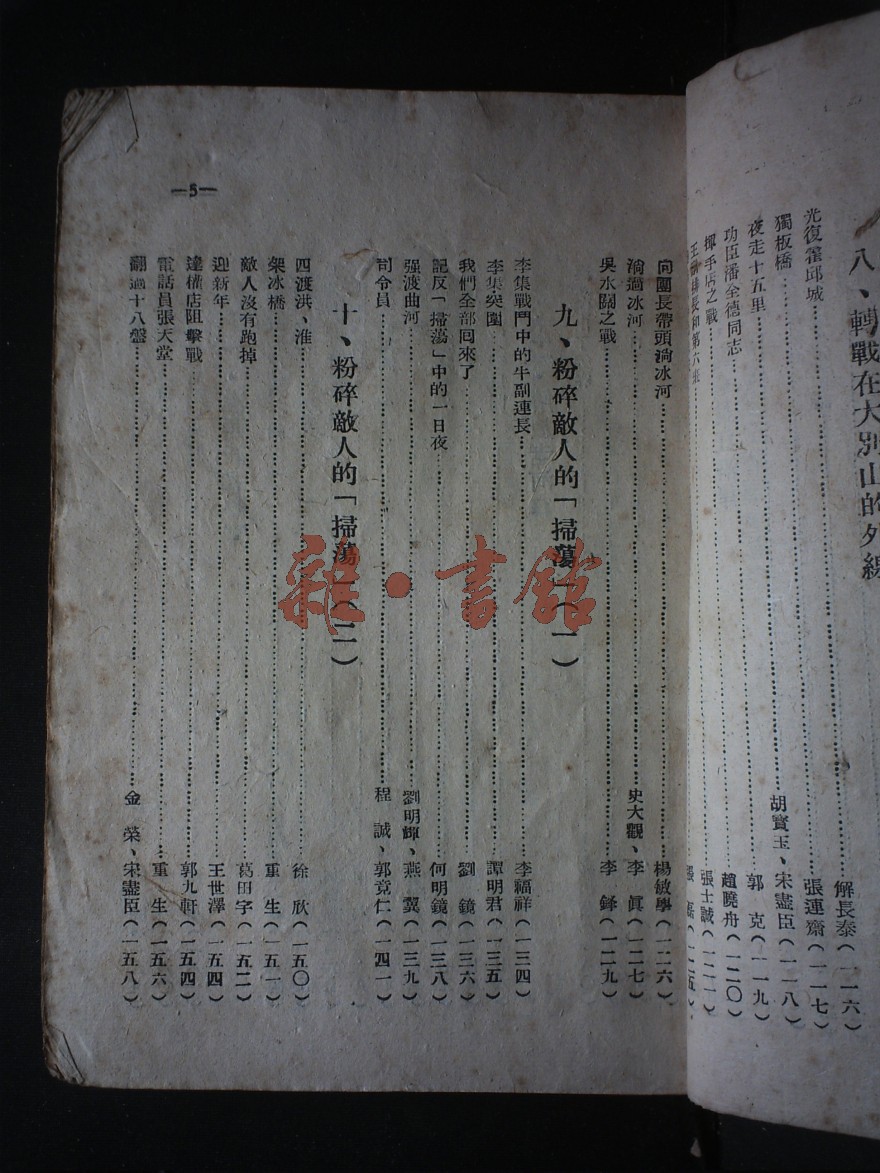 八、轉戰在大別山的外線
光復霍邱城……解長泰(一一六)
獨板橋……張連齋(一一七)
夜走十五里……胡寶玉、宋盡臣(一一八)
功臣潘全德同志……郭　克(一一九)
揮手店之戰……趙曉舟(一二〇)
排長和第六班……張士誠(一二一)
張　磊(一二五)
向團長帶頭淌冰河……楊敏學(一二六)
淌過冰河……史大觀、李　眞(一二七)
吳水關之戰……李　鋒(一二九)
九、粉碎敵人的「掃蕩」(一)
李集戰鬥中的牛副連長……李福祥(一三四)
李集突圍……譚明君(一三五)
我們全部囘來了……劉　鏡(一三六)
記反「掃蕩」中的一日夜……何明鏡(一三八)
强渡曲河……劉明輝、燕　翼(一三九)
司令員……程　誠、郭竟仁(一四一)
十、粉碎敵人的「掃蕩」(二)
四渡洪、淮……徐　欣(一五〇)
架冰橋……重　生(一五一)
敵人沒有跑掉……葛田字(一五二)
迎新年……王世澤(一五四)
達權店阻擊戰……郭九軒(一五四)
電話員張天堂……重　生(一五六)
翻過十八盤……金　榮、宋盡臣(一五八)
—5—
雜·書館